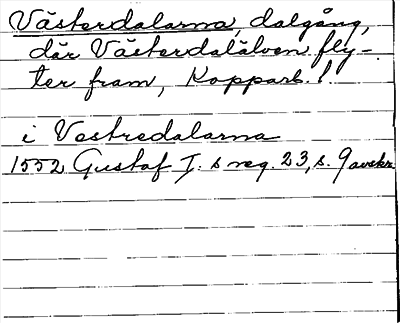 Västerdalarna, dalgång,
där Västerdalälven fly-
ter fram, Kopparb. l.
i Vestredalarna
1552 Gustaf I.s reg. 23, s. 9 avskr.